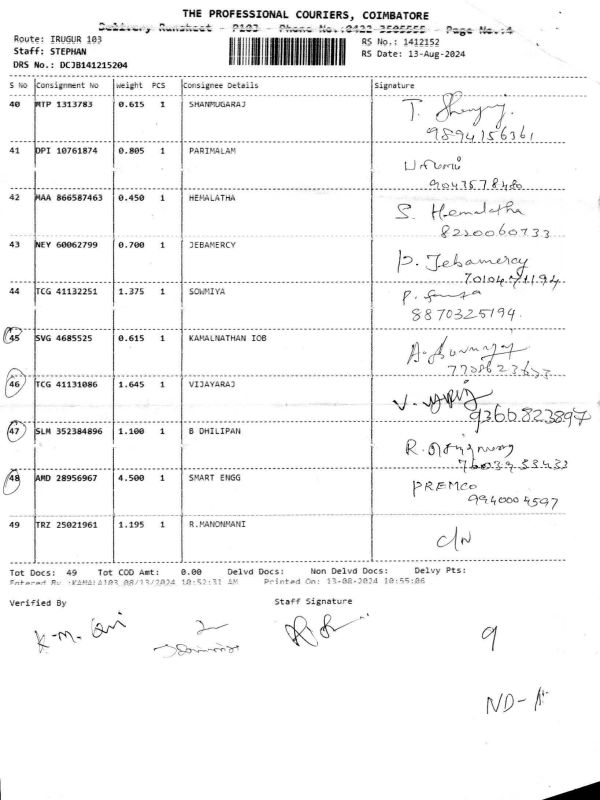 THE PROFESSIONAL COURIERS, COIMBATORE
Delivery Runsheet - P103 - Phone No.:0422-3505555 - Page No.:4
Route: IRUGUR 103
Staff: STEPHAN
DRS No.: DCJB141215204
RS No.: 1412152
RS Date: 13-Aug-2024
S No Consignment No weight PCS Consignee Details Signature
40 MTP 1313783 0.615 1 SHANMUGARAJ
9894156361
41 DPI 10761874 0.805 1 PARIMALAM
9043578480
42 MAA 866587463 0.450 1 HEMALATHA S. Hemalatha
8220060733
43 NEY 60062799 0.700 1 JEBAMERCY P. Jebamercy
44 TCG 41132251 1.375 1 SOWMIYA
8870325194
45 SVG 4685525 0.615 1 KAMALNATHAN IOB
46 TCG 41131086 1.645 1 VIJAYARAJ
9366823897
47 SLM 352384896 1.100 1 B DHILIPAN
48 AMD 28956967 4.500 1 SMART ENGG PREMCO
9940004597
49 TRZ 25021961 1.195 1 R.MANONMANI C/N
Tot Docs: 49 Tot COD Amt: 0.00 Delvd Docs: Non Delvd Docs: Delvy Pts:
Entered By :KAMALA103 08/13/2024 10:52:31 AM Printed On: 13-08-2024 10:55:06
Verified By Staff Signature
9